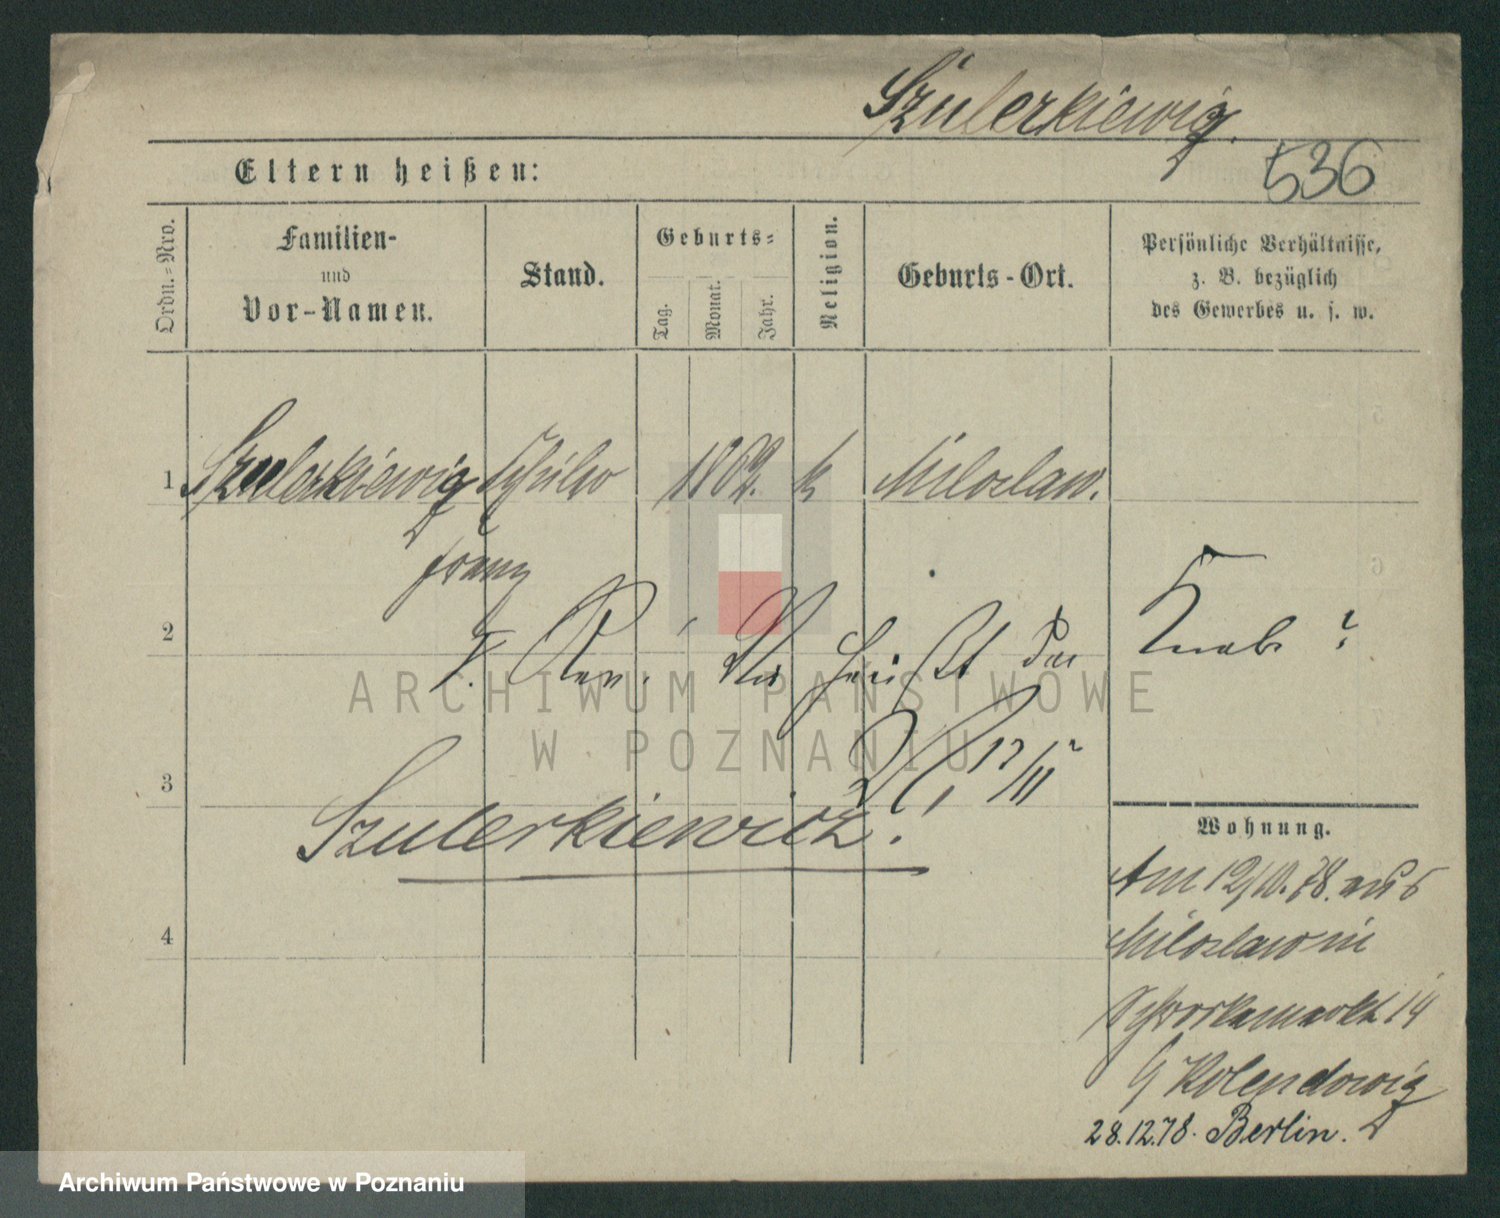 Szulerkiewicz.
536
Eltern heißen:
Ordn.=Nro.
Familien-
und
Vor-Namen.
Stand.
Geburts=
Tag.
Monat.
Jahr.
Religion.
Geburts-Ort.
Persönliche Verhältnisse,
z. B. bezüglich
des Gewerbes u. s. w.
1 Szulerkiewicz Schüler 1862. k Miloslaw.
Franz
2 V. Rev. Wie heißt der Knabe?
ARCHIWUM PAŃSTWOWE
W POZNANIU
17/11
3
Szulerkiewicz!
Wohnung.
Am 12/10. 78. aus
Miloslaw in
4
14
Kolendowicz
28.12.78. Berlin.
Archiwum Państwowe w Poznaniu